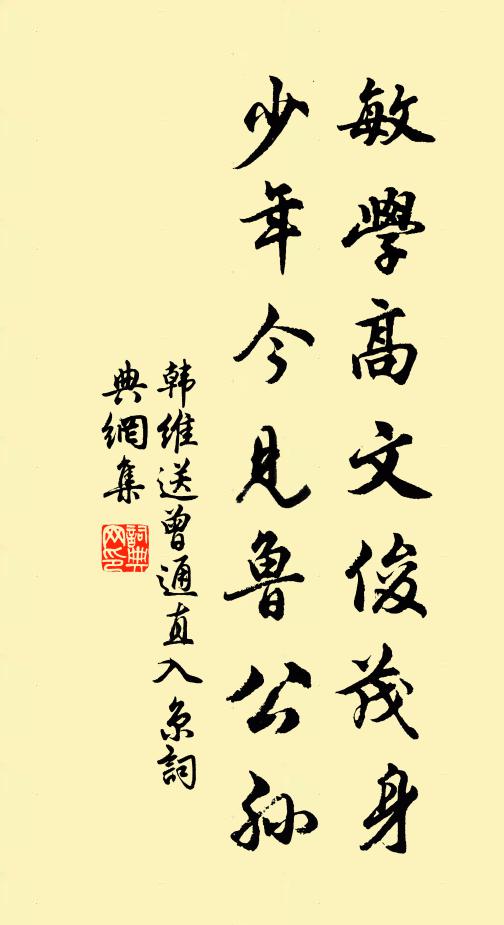 敏學高文俊茂身
少年今見魯公孫
韩維送曾通直入京詞
典網集
詞典網印